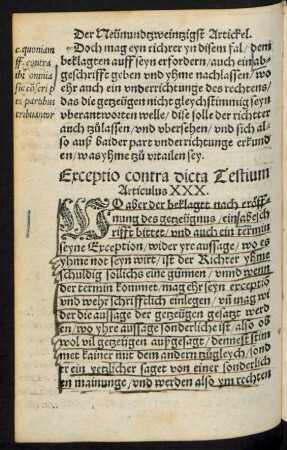 Der Neundtzweintzigst Artickel.
c. quoniam
ff. contra
ibi omnia
sic cōscripta
partibus
tribuantor
Doch mag eyn richter yn disem fal / dem
beklagten auff seyn erfordern / auch ein ab-
geschrifft geben vnd yhme nachlassen / wo
ehr auch ein vnderrichtunge des rechtens /
das die getzeügen nicht gleychstimmig seyn
vberantworten welle / dise solle der richtter
auch zůlassen / vnd vbersehen / vnd sich al-
so auß baider part vnderrichtunge erkund
en / was yhme zů vrtailen sey.
Exceptio contra dicta Testium
Articulus XXX.
WO aber der beklagtt nach eröff-
nung des getzeügnus / ein abesch
rifft bittet / vnd auch ein termin
seyne Exception / wider yre aussage / wo es
yhme not seyn wirt / ist der Richter yhme
schuldig sollichs eine günnen / vnnd wenn
der termin kommet / mag ehr seyn exceptio
vnd wehr schrifftlich einlegen / vn̄ mag wi
der die aussage der getzeügen gesatzt werd
en / wo yhre aussage sonderliche ist / als ob
wol vil getzeügen außgesagt / dennest stim
met kainer mit dem andern zůgleych / sond
er ein yetzlicher saget von einer sonderlich
en mainunge / vnd werden also ym rechten